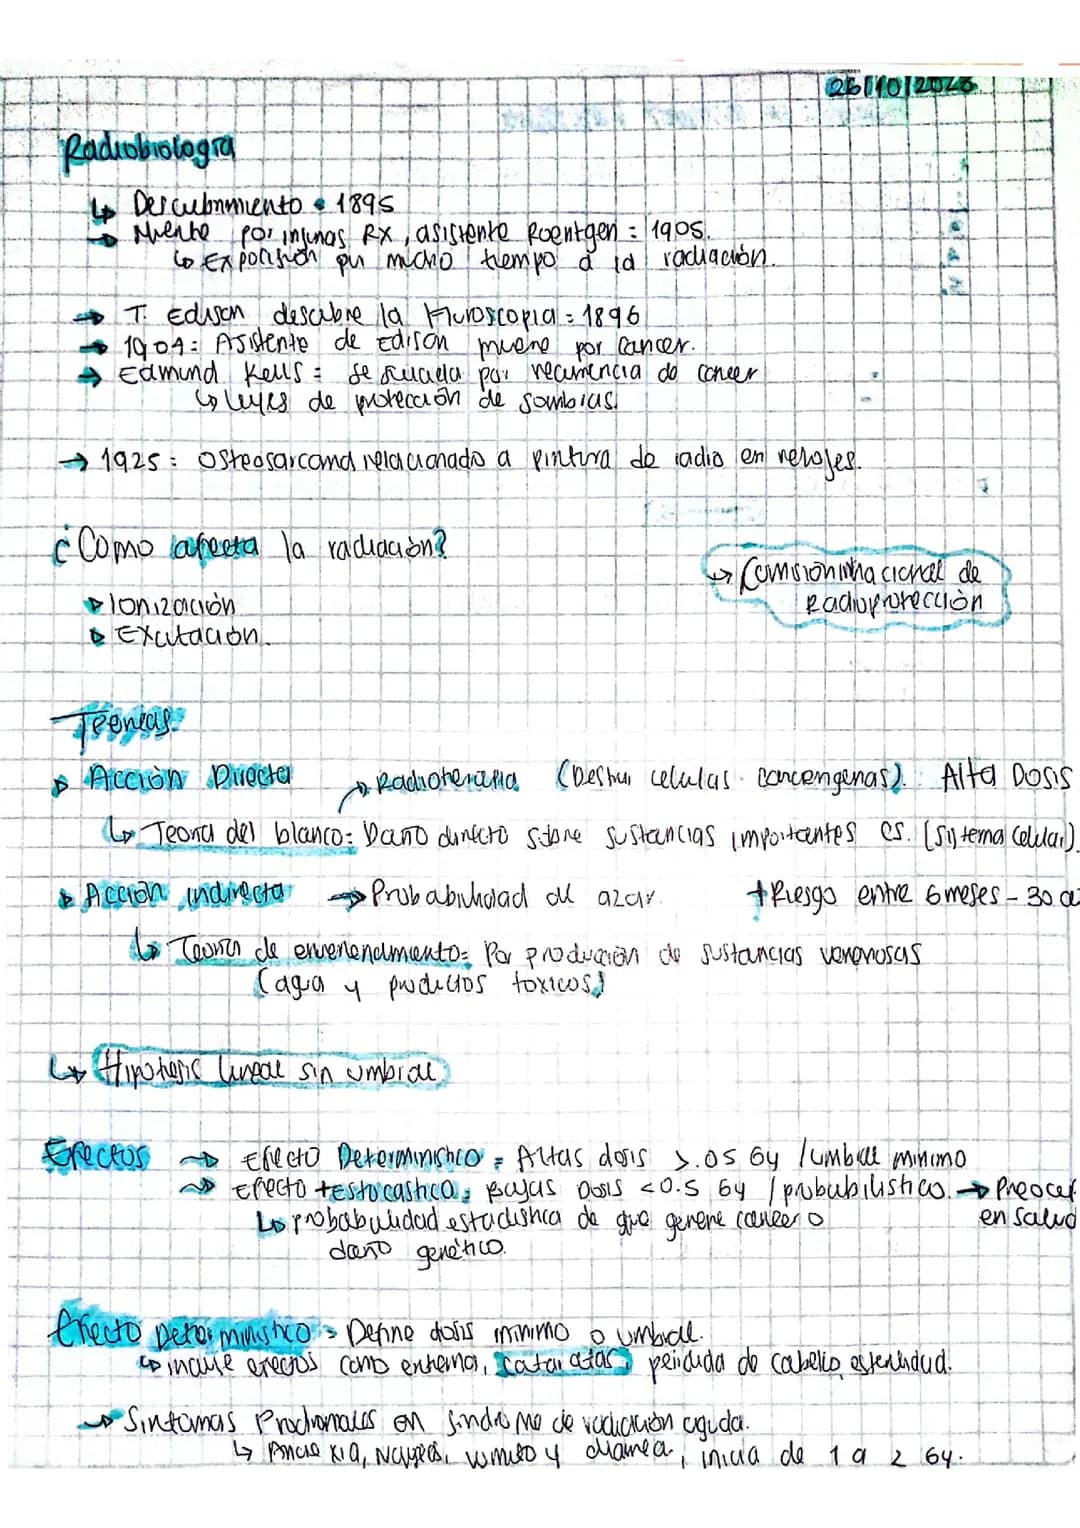 26/10/2023
Radiobiología
↳ Descubrimiento • 1895
→ Muerte por injurias RX, asistente Roentgen = 1905.
↳ Exposición por mucho tiempo a la radiación.
→ T. Edison descubre la Fluroscopia = 1896
→ 1904: Asistente de Edison muere por Cancer.
→ Edmund Kells = Se suicida por recurrencia de cancer
↳ Leyes de protección de sombias.
→ 1925: Osteosarcoma relacionado a pintura de radio en relojes.
¿Como afecta la radiación?
→ Comsion Nacional de
Radioprotección
▸ Ionización
▸ Exitación.
Teorias:
▸ Acción Directa → Radioterapia (Destruir celulas cancerigenas). Alta Dosis
↳ Teoria del blanco: Daño directo sobre sustancias importantes es. (Sistema Celular).
▸ Acción indirecta → Probabilidad al azar. + Riesgo entre 6 meses - 30
↳ Teoria de envenenamiento: Por producción de sustancias venenosas
(agua y productos toxicos)
↳ Hipotesis lineal sin umbral
Efectos → Efecto Deterministico = Altas dosis >.05 Gy / umbral minimo
→ Efecto +Estocastica: Bajas Dosis <0.5 Gy / probabilistico. →
↳ probabilidad estadistica de que genere cancer o en salud
daño genético.
Efecto Deterministico = Define dosis minimo o umbral.
↳ incluye efectos como eritema, cataratas, perdida de cabello, esterilidad.
→ Sintomas Prodromales en sindrome de radiación aguda.
↳ Anorexia, Nauseas, vomito y diarrea, inicia de 1 a 2 Gy.